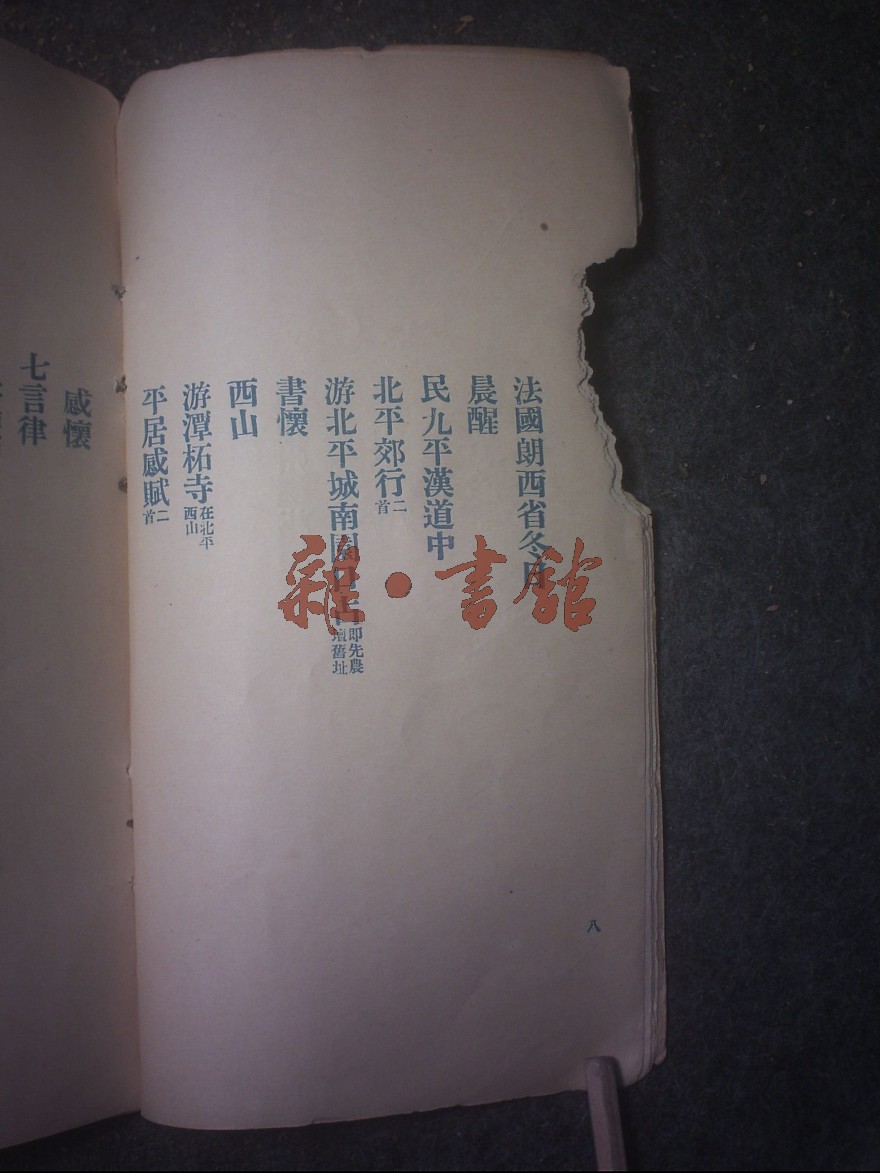 法國朗西省冬日
晨醒
民九平漢道中
北平郊行二首
游北平城南園口占即先農壇舊址
書懷
西山
游潭柘寺在北平西山
平居感賦二首
八
感懷
七言律
雜·書館